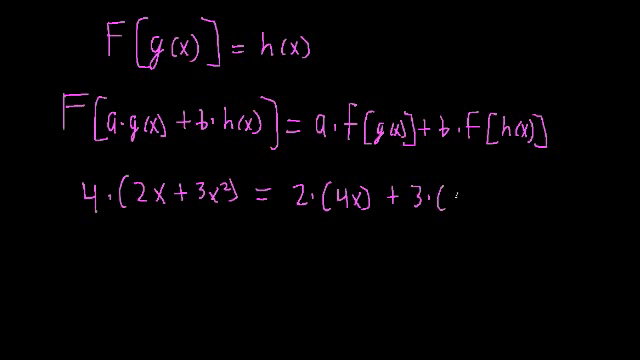 F[g(x)] = h(x)
F[a·g(x) + b·h(x)] = a·F[g(x)] + b·F[h(x)]
4·(2x + 3x²) = 2·(4x) + 3·(